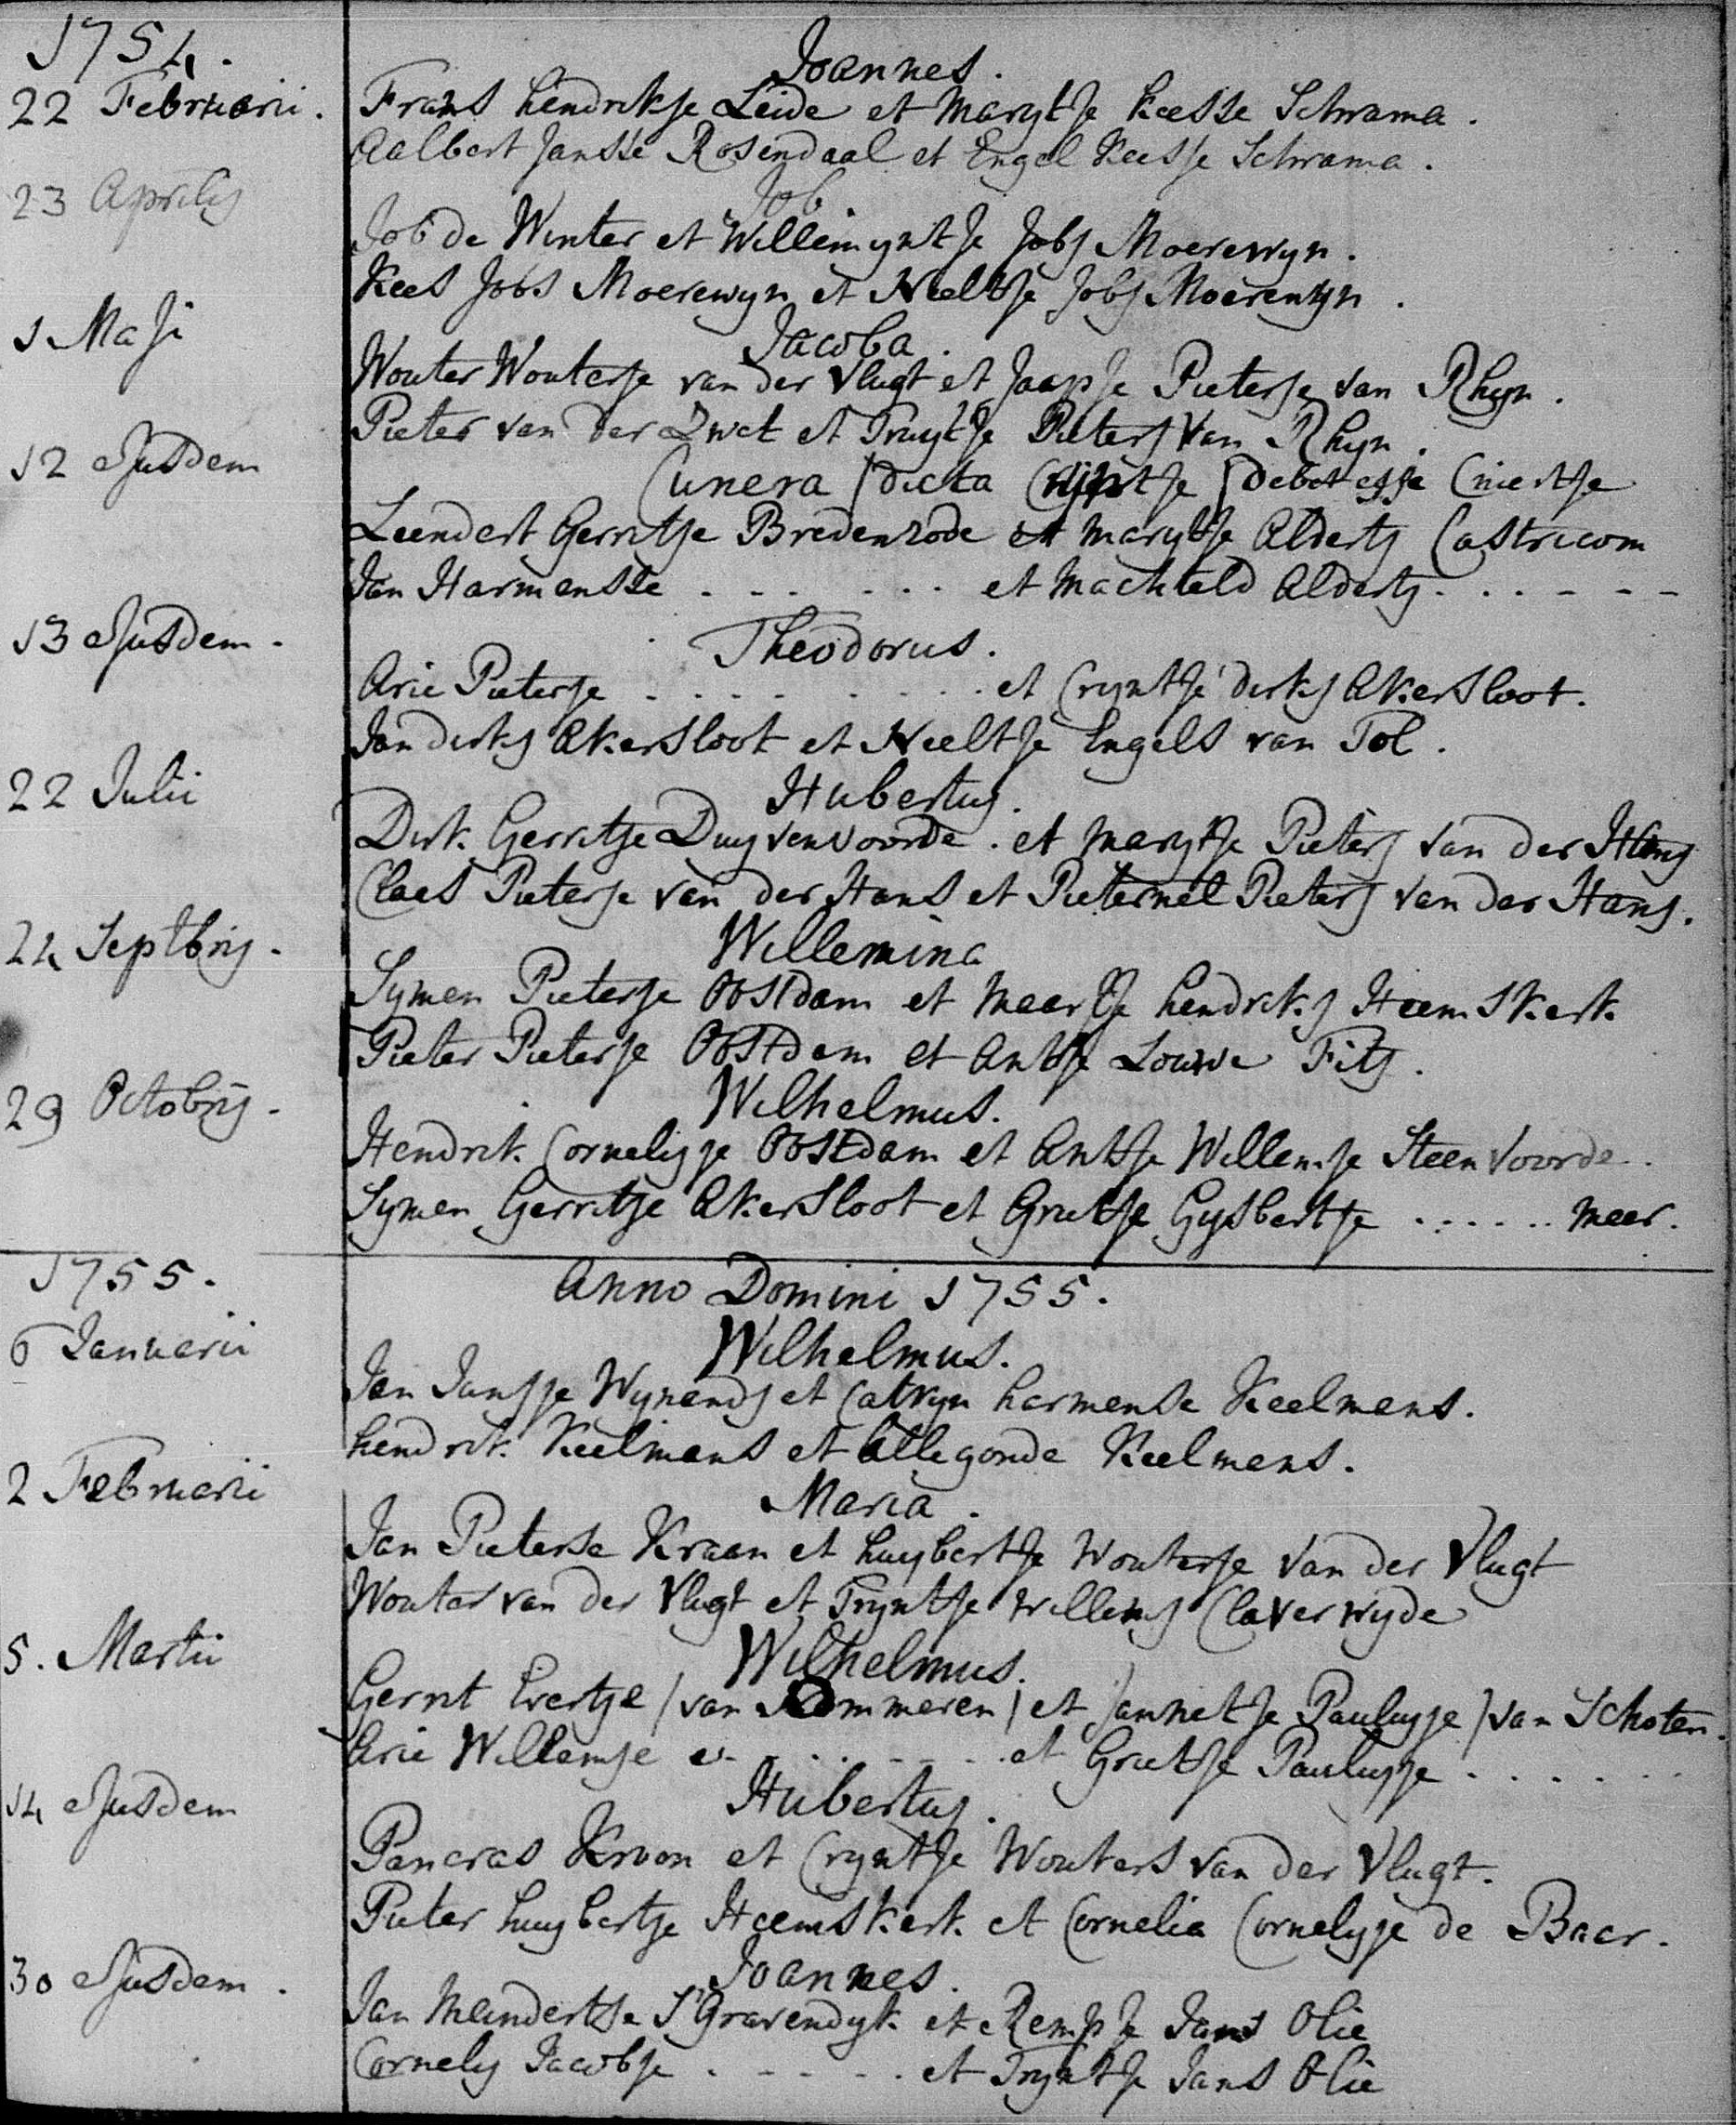 1754.
Joannes.
22 Februarii. Frans hendrikse Leide et marytje Keesse Schrama.
Aalbert Jansse Rosendaal et Engel Keesse Schrama.
23 Aprilis Job
Job de Winter et Willemyntje Jobs Moerewyn.
Kees Jobs Moerewyn et Neeltje Jobs Moerewyn.
1 Maji Jacoba.
Wouter Wouterse van der Vlugt et Jaapje Pieterse van Rhyn.
Pieter van der Zwet et Truytje Pieters van Rhyn.
12 ejusdem Cunera / dicta Cryntje / debet esse Cniertje
Leendert Gerritse Bredenrode et marytje Alderts Castricom
Jan Harmensse . . . . . . et Machteld Alderts . . . . . .
13 ejusdem. Theodorus.
Arie Pieterse . . . . . . . . . et Cryntje dirks Akersloot.
Jan dirks Akersloot et Neeltje Engels van Tol.
22 Julii Hubertus.
Dirk Gerritse Duyvenvoorde. et marytje Pieters van der Hans
Claes Pieterse van der Hans et Pieternel Pieters van der Hans.
24 Septbris. Willemina
Symen Pieterse Oostdam et Maertje hendriks Heemskerk
Pieter Pieterse Oostdam et Antje Louwe Fits.
29 Octobris. Wilhelmus.
Hendrik Cornelisse Oostdam et Antje Willemse Steenvoorde.
Symen Gerritse Akersloot et Grietje Gysbertse . . . . . . meer.
1755. Anno Domini 1755.
6 Januarii Wilhelmus.
Jan Jansse Wynands et Catryn harmense Keelmans.
hendrik Keelmans et Allegonde Keelmans.
2 Februarii Maria.
Jan Pieterse Kraan et huybertje Wouterse van der Vlugt
Wouter van der Vlugt et Tryntje Willems Claverwyde
5. Martii Wilhelmus.
Gerrit Evertse / van Sommeren / et Jannetje Paulusse / van Schoten.
Arie Willemse . . . . . . et Grietje Paulusse . . . . . .
14 ejusdem Hubertus.
Pancras Kroon et Cryntje Wouters van der Vlugt.
Pieter huybertse Heemskerk et Cornelia Cornelisse de Baer.
30 ejusdem. Joannes.
Jan Meindertse S'Gravendyk et Rempje Jans Olie
Cornelis Jacobse . . . . . et Tryntje Jans Olie